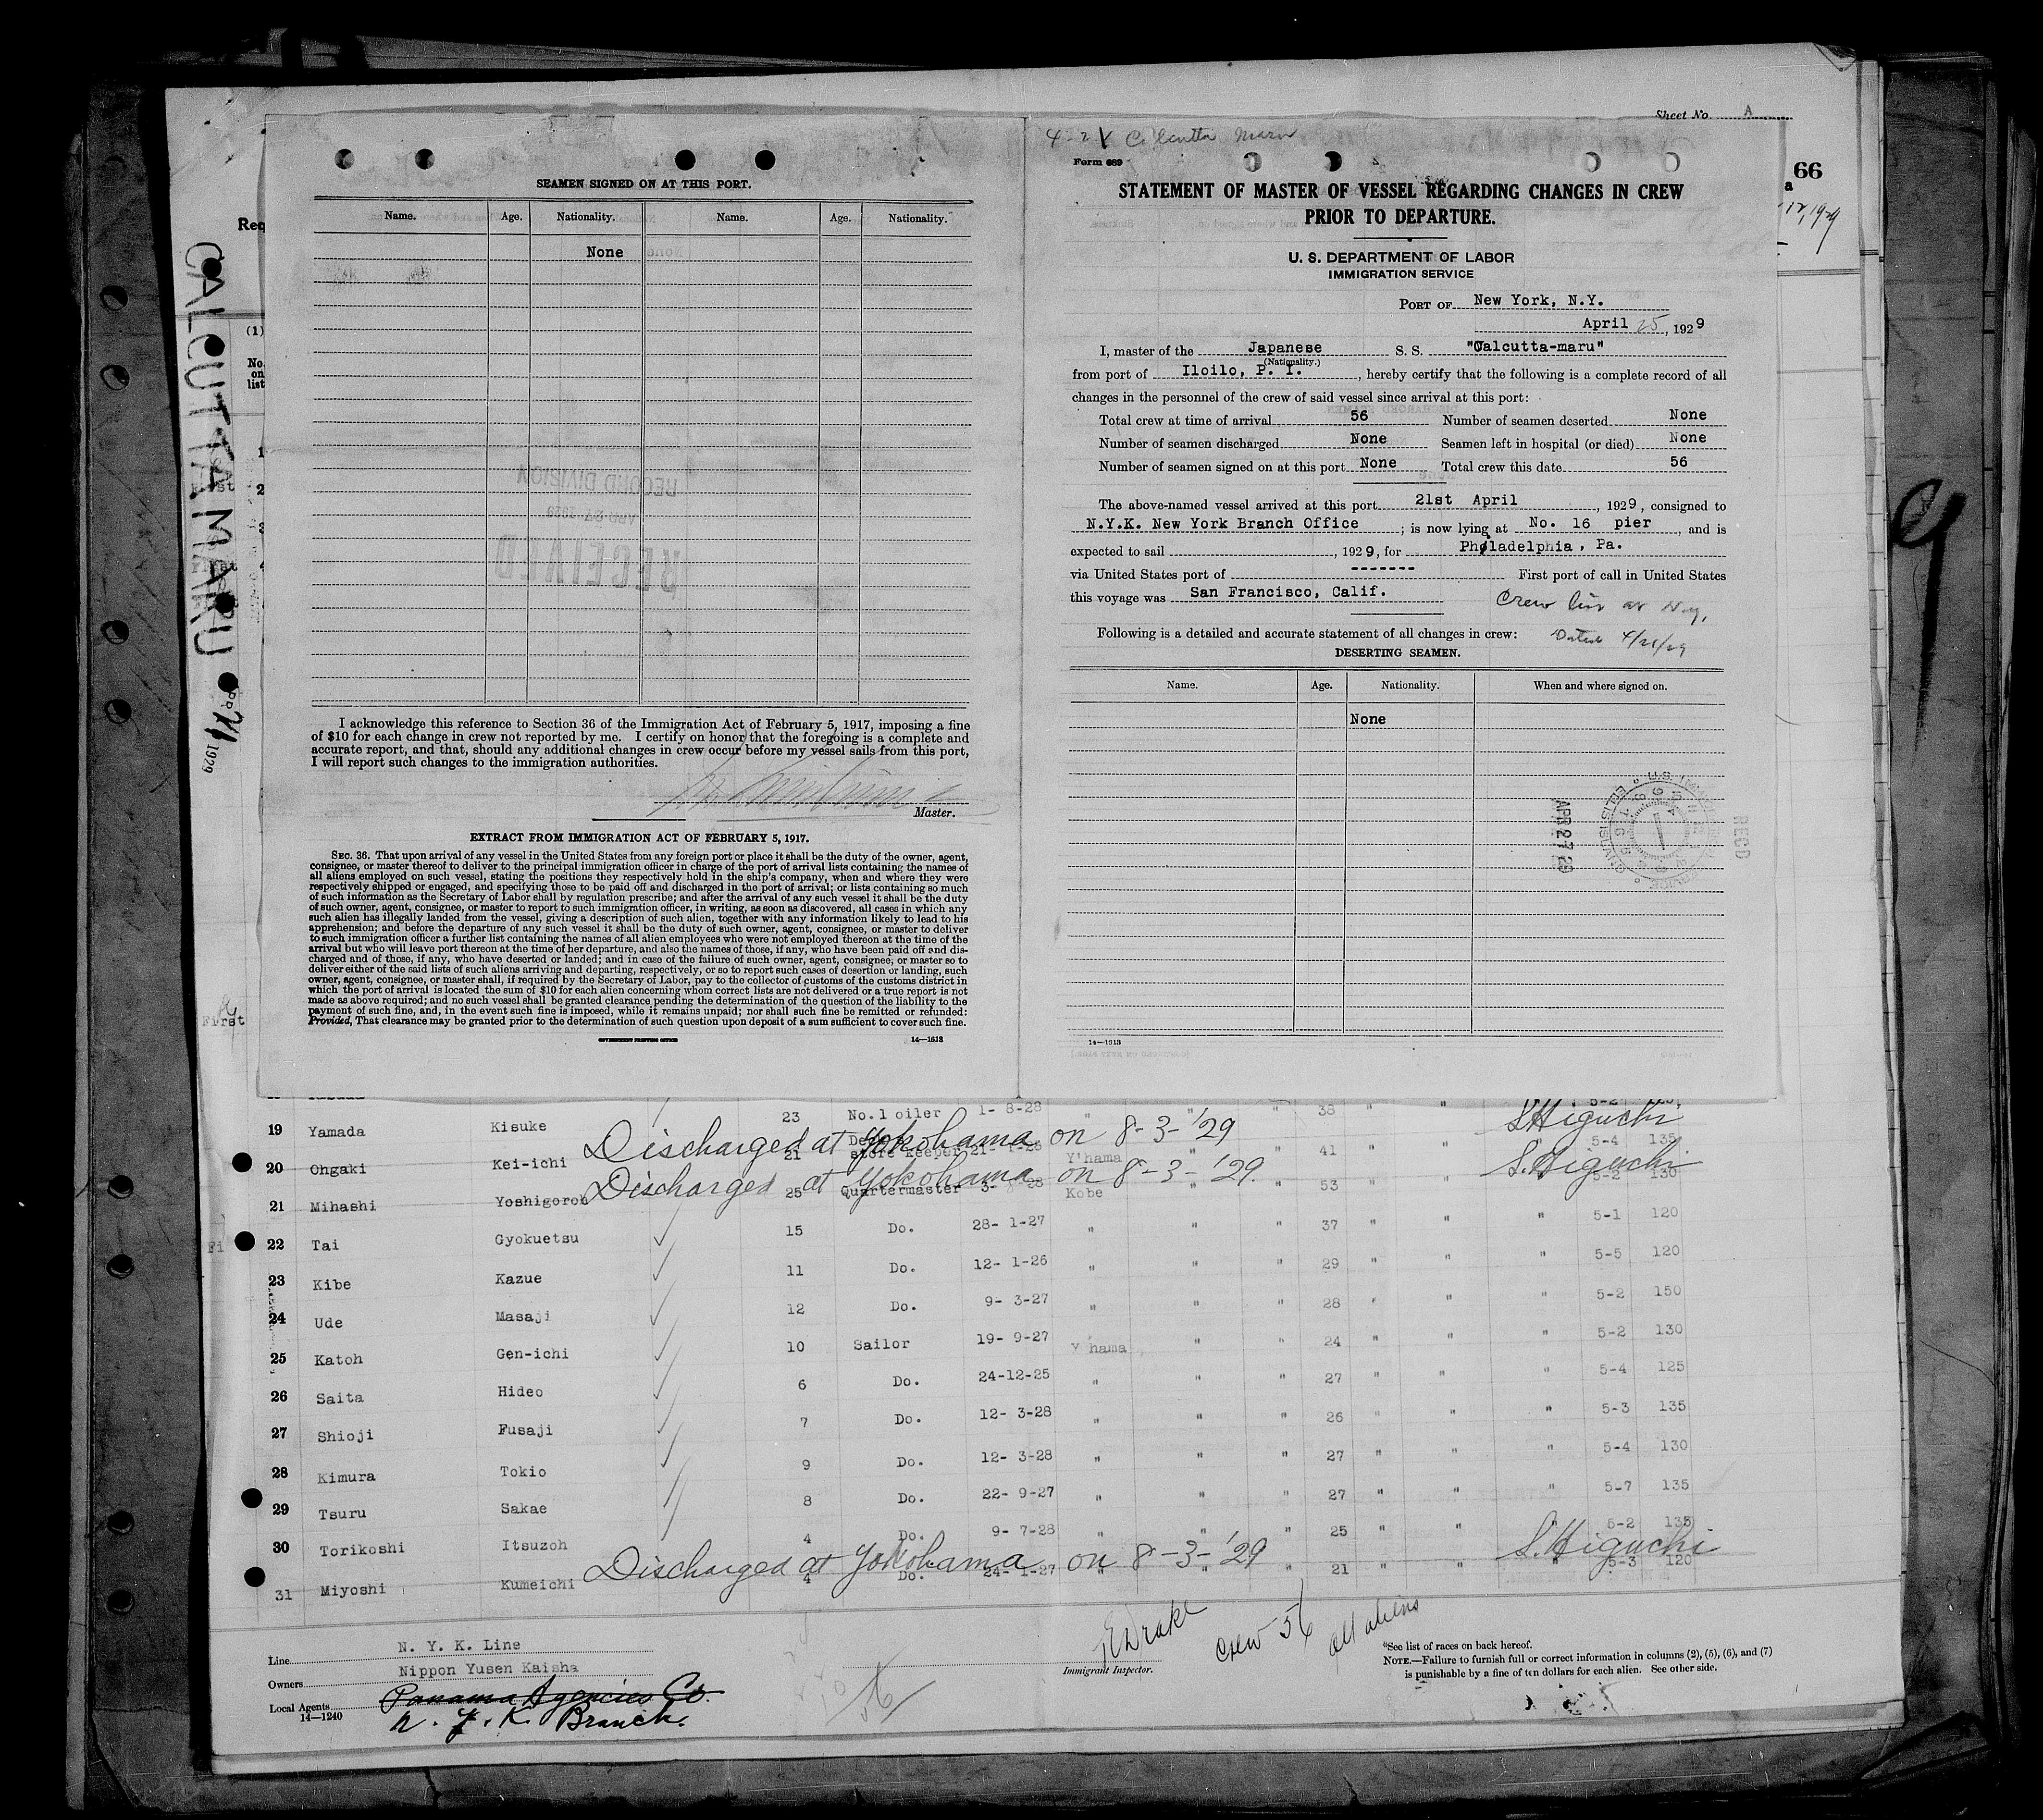 Sheet No. A
66
CALCUTTA MARU
1929
SEAMEN SIGNED ON AT THIS PORT.
Name. Age. Nationality. Name. Age. Nationality.
None
RECEIVED
RECORD DIVISION
I acknowledge this reference to Section 36 of the Immigration Act of February 5, 1917, imposing a fine
of $10 for each change in crew not reported by me. I certify on honor that the foregoing is a complete and
accurate report, and that, should any additional changes in crew occur before my vessel sails from this port,
I will report such changes to the immigration authorities.
Master.
EXTRACT FROM IMMIGRATION ACT OF FEBRUARY 5, 1917.
SEC. 36. That upon arrival of any vessel in the United States from any foreign port or place it shall be the duty of the owner, agent,
consignee, or master thereof to deliver to the principal immigration officer in charge of the port of arrival lists containing the names of
all aliens employed on such vessel, stating the positions they respectively hold in the ship's company, when and where they were
respectively shipped or engaged, and specifying those to be paid off and discharged in the port of arrival; or lists containing so much
of such information as the Secretary of Labor shall by regulation prescribe; and after the arrival of any such vessel it shall be the duty
of such owner, agent, consignee, or master to report to such immigration officer, in writing, as soon as discovered, all cases in which any
such alien has illegally landed from the vessel, giving a description of such alien, together with any information likely to lead to his
apprehension; and before the departure of any such vessel it shall be the duty of such owner, agent, consignee, or master to deliver
to such immigration officer a further list containing the names of all alien employees who were not employed thereon at the time of the
arrival but who will leave port thereon at the time of her departure, and also the names of those, if any, who have been paid off and dis-
charged and of those, if any, who have deserted or landed; and in case of the failure of such owner, agent, consignee, or master so to
deliver either of the said lists of such aliens arriving and departing, respectively, or so to report such cases of desertion or landing, such
owner, agent, consignee, or master shall, if required by the Secretary of Labor, pay to the collector of customs of the customs district in
which the port of arrival is located the sum of $10 for each alien concerning whom correct lists are not delivered or a true report is not
made as above required; and no such vessel shall be granted clearance pending the determination of the question of the liability to the
payment of such fine, and, in the event such fine is imposed, while it remains unpaid; nor shall such fine be remitted or refunded:
Provided, That clearance may be granted prior to the determination of such question upon deposit of a sum sufficient to cover such fine.
GOVERNMENT PRINTING OFFICE 14—1613
Calcutta Maru
Form 689
STATEMENT OF MASTER OF VESSEL REGARDING CHANGES IN CREW
PRIOR TO DEPARTURE.
U. S. DEPARTMENT OF LABOR
IMMIGRATION SERVICE
PORT OF New York, N.Y.
April 25, 1929
I, master of the Japanese S. S. "Calcutta-maru"
(Nationality.)
from port of Iloilo, P. I., hereby certify that the following is a complete record of all
changes in the personnel of the crew of said vessel since arrival at this port:
Total crew at time of arrival 56 Number of seamen deserted None
Number of seamen discharged None Seamen left in hospital (or died) None
Number of seamen signed on at this port None Total crew this date 56
The above-named vessel arrived at this port 21st April, 1929, consigned to
N.Y.K. New York Branch Office; is now lying at No. 16 pier, and is
expected to sail , 1929, for Philadelphia, Pa.
via United States port of ------- First port of call in United States
this voyage was San Francisco, Calif. Crew list at N.Y.
Dated 4/21/29
Following is a detailed and accurate statement of all changes in crew:
DESERTING SEAMEN.
Name. Age. Nationality. When and where signed on.
None
RECD
APR 27 29
14—1613
19 Yamada Kisuke 23 No.1 oiler 1- 8-28 " " " 38 " "
Discharged at Yokohama on 8-3-'29 S.Higuchi
20 Ohgaki Kei-ichi 21 store keeper Y'hama " 41 " " 5-4 135
Discharged at Yokohama on 8-3-'29. S.Higuchi
21 Mihashi Yoshigoroh 25 Quartermaster Kobe " " 53 " " 5-2 130
22 Tai Gyokuetsu 15 Do. 28- 1-27 " " " 37 " " " 5-1 120
23 Kibe Kazue 11 Do. 12- 1-26 " " " 29 " " " 5-5 120
24 Ude Masaji 12 Do. 9- 3-27 " " " 28 " " " 5-2 150
25 Katoh Gen-ichi 10 Sailor 19- 9-27 Y'hama " " 24 " " " 5-2 130
26 Saita Hideo 6 Do. 24-12-25 " " " 27 " " " 5-4 125
27 Shioji Fusaji 7 Do. 12- 3-28 " " " 26 " " " 5-3 135
28 Kimura Tokio 9 Do. 12- 3-28 " " " 27 " " " 5-4 130
29 Tsuru Sakae 8 Do. 22- 9-27 " " " 27 " " " 5-7 135
30 Torikoshi Itsuzoh 4 Do. 9- 7-28 " " " 25 " " " 5-2 135
Discharged at Yokohama on 8-3-'29 S.Higuchi
31 Miyoshi Kumeichi 4 Do. 24- 1-27 " " " 21 " " " 5-3 120
Line N. Y. K. Line
Owners Nippon Yusen Kaisha
Local Agents Panama Agencies Co.
N. Y. K. Branch.
14—1240
56
EDrake
Immigrant Inspector.
Crew 56 all aliens
*See list of races on back hereof.
NOTE.—Failure to furnish full or correct information in columns (2), (5), (6), and (7)
is punishable by a fine of ten dollars for each alien. See other side.